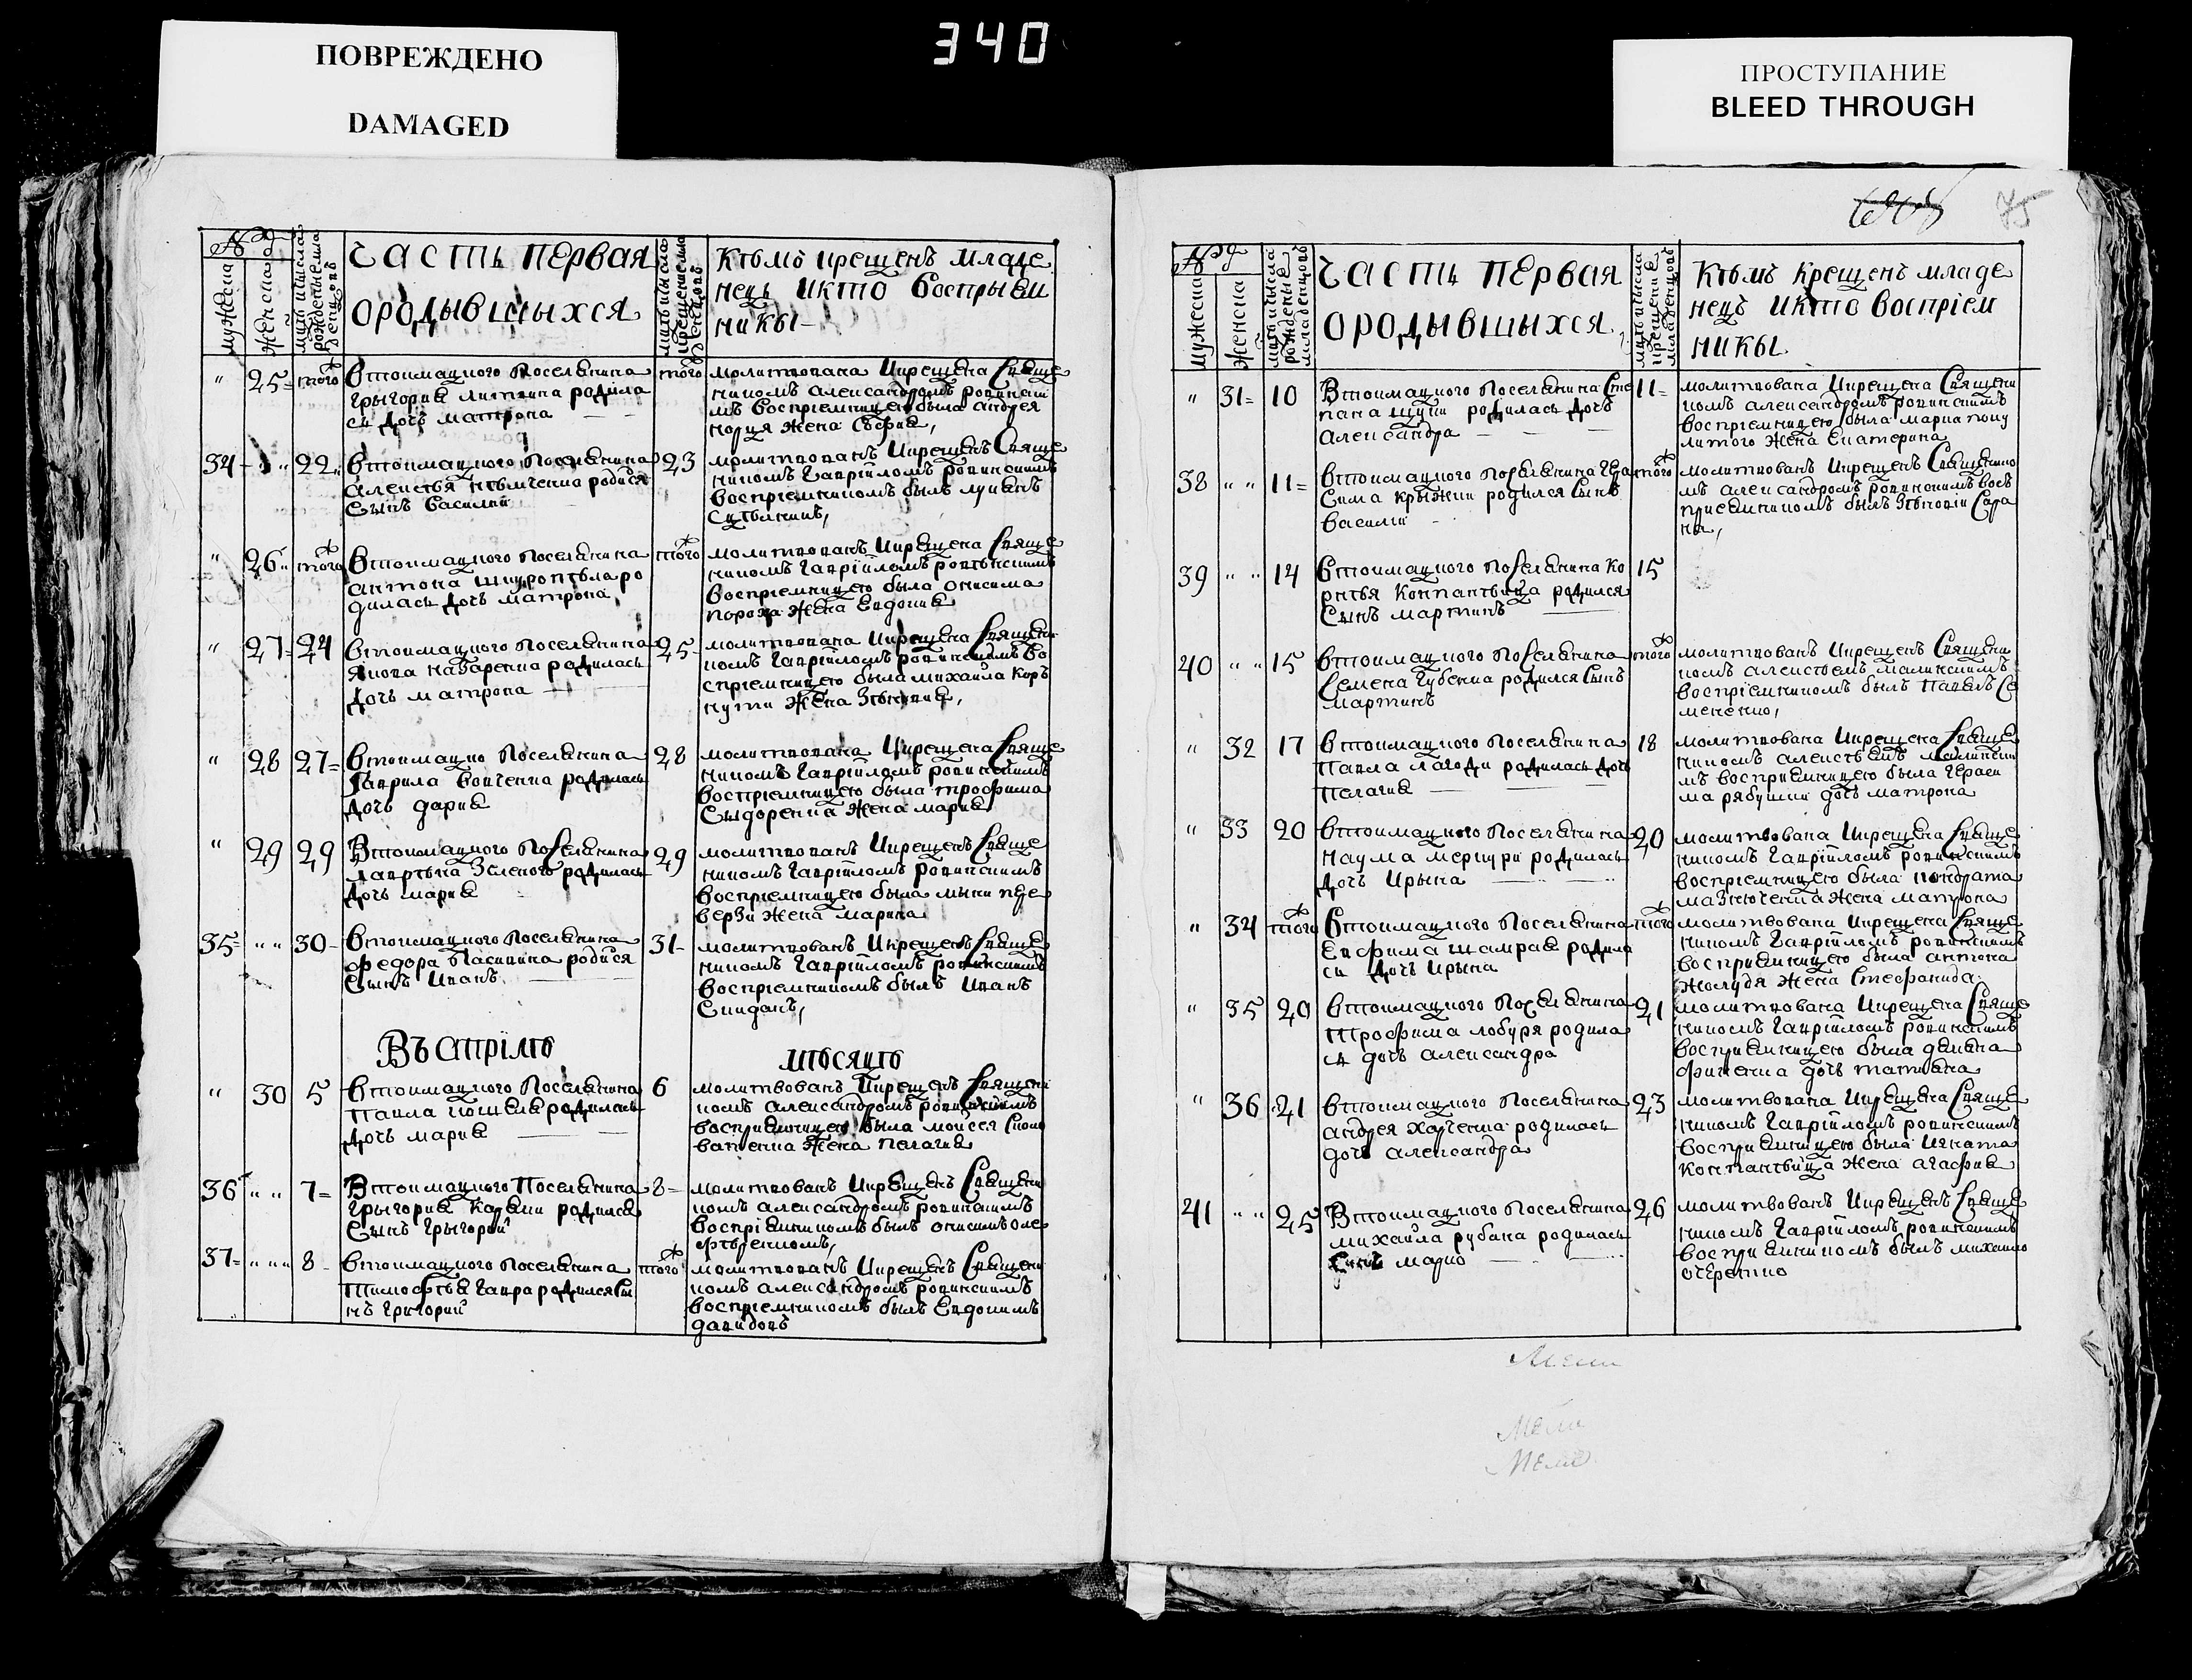 340
ПОВРЕЖДЕНО
DAMAGED
ПРОСТУПАНИЕ
BLEED THROUGH
75
№д
мужеска
женска
часть первая
ородывшыхся
Кѣмъ крещенъ младе
нецъ икто воспрыем
никы
" 25 того
втоимацкого поселянина
Грыгория литвина родила
сь дочь матрона
того
молитвована икрещена Свяще
ником александром ровинским
мъ восприемницею была андрея
жена София,
34 " 22
втоимацкого поселянина
алексѣя нѣмченка родися
Сынъ василий
23
молитвованъ икрещенъ Свяще
никомъ Гавриіломъ ровинскимъ
восприемникомъ былъ лукьянъ
Ситьникъ,
" 26 того
втоимацкого поселянина
антона широпѣла ро
дилась дочь матрона
того
молитвованъ икрещена Свяще
никомъ Гавриіломъ ровѣнскимъ
восприемницею была онисима
пороха жена Евдокия
" 27 24
втоимацкого поселянина
Якова назаренка родилась
дочь матрона
25
молитвована икрещена Священ
икомъ Гавриіломъ ровинскимъ во
сприемницею была михаила кор
нути жена Зѣновия,
" 28 27
втоимацко поселянина
Гаврила войченка родилась
дочь дария
28
молитвована икрещена Свяще
никомъ Гавриіломъ ровинскимъ
восприемницею была трофима
Сыдоренка жена мария
" 29 29
Втоимацкого поселянина
лаврѣна Зѣленого родилась
дочь мария
29
молитвованъ икрещенъ Свяще
никомъ Гавриіломъ ровинскимъ
восприемницею была мыки пере
верзи жена марина
35 " " 30
втоимацкого поселянина
федора пасишка родися
Сынъ иванъ
31
молитвованъ икрещенъ Свяще
никомъ Гавриіломъ ровинскимъ
восприемникомъ былъ иванъ
Сыиданъ,
Въ апрілѣ мѣсяцѣ
" 30 5
втоимацкого поселянина
павла кошеля родилась
дочь мария
6
молитвованъ икрещенъ Священ
комъ александромъ ровинскимъ
восприемницею была моисея
ватченка жена пелагия
36 " " 7
Втоимацкого Поселянина
Грыгория карпии родился
Сынъ Грыгорий
8
молитвованъ икрещенъ Священ
икомъ александромъ ровинскимъ
восприемникомъ былъ онисимъ оле
фѣренкомъ,
37 " " " 8
втоимацкого поселянина
тимофѣя гавра родился Сы
нъ григорий
того
молитвованъ икрещенъ Священ
икомъ александромъ ровинскимъ
восприемникомъ былъ Евдокимъ
давидовъ
№д
мужеска
женска
часть первая
ородывшыхся
Кѣмъ крещенъ младе
нецъ икто воспріем
никы
" 31 10
Втоимацкого поселянина Сте
пана щуки родилась дочь
александра
11
молитвована икрещена Священи
комъ александромъ ровинскимъ
восприемницею была марка
литого жена Екатерина
38 " " 11
втоимацкого поселянина Гера
Сима крыжки родился Сынъ
василии
того
молитвованъ икрещенъ Священико
мъ александромъ ровинскимъ вось
приемникомъ былъ Зѣновіи Сара
на,
39 " " 14
втоимацкого поселянина ко
рнѣя компанѣйца родился
Сынъ мартинъ
15
40 " " 15
втоимацкого поселянина
Семена губенка родился Сынъ
мартинъ
того
молитвованъ икрещенъ Священи
комъ алексѣемъ малинскимъ
восприемникомъ былъ Павелъ Се
мененко,
" 32 17
втоимацкого поселянина
павла лагоди родилась дочь
пелагия
18
молитвована икрещена Свяще
никомъ алексѣемъ малински
мъ восприемницею была Гераси
ма рябушки дочь матрона
" 33 20
втоимацкого поселянина
наума меркури родилась
дочь Ирына
20
молитвована икрещена Свяще
никомъ Гавриіломъ ровинскимъ
восприемницею была кондрата
мазюченка жена матрона
" 34 того
втоимацкого поселянина
Ефима шамрая родила
сь дочь Ирына
того
молитвовани икрещена Свяще
никомъ Гавриіломъ ровинскимъ
восприемницею была антона
жолудя жена Стефанида
" 35 20
втоимацкого поселянина
трофима лобуря родила
сь дочь александра
21
молитвована икрещена Свяще
никомъ Гавриіломъ ровинскимъ
восприемницею была демяна
фиченка дочь татияна
" 36 21
втоимацкого поселянина
андрея харченка родилась
дочь александра
23
молитвована икрещена Свяще
никомъ Гавриіломъ ровинскимъ
восприемницею была Игната
компанѣйца жена агафия
41 " " 25
Втоимацкого поселянина
михайла рубана родилась
Сынъ марко
26
молитвованъ икрещенъ Свяще
никомъ Гавриіломъ ровинскимъ
восприемникомъ былъ михайло
очеретко